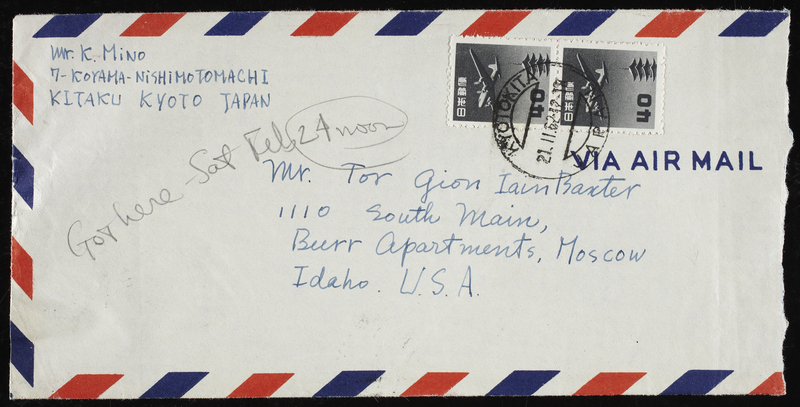 Mr. K. Mino
7-KOYAMA-NISHIMOTOMACHI
KITAKU KYOTO JAPAN
日本郵便
40
日本郵便
40
KYOTOKITA
21.II.62.12-18
JAPAN
VIA AIR MAIL
Got here - Sat Feb, 24 noon
Mr. Tor Gion Iain Baxter
1110 South Main,
Burr Apartments, Moscow
Idaho. U.S.A.